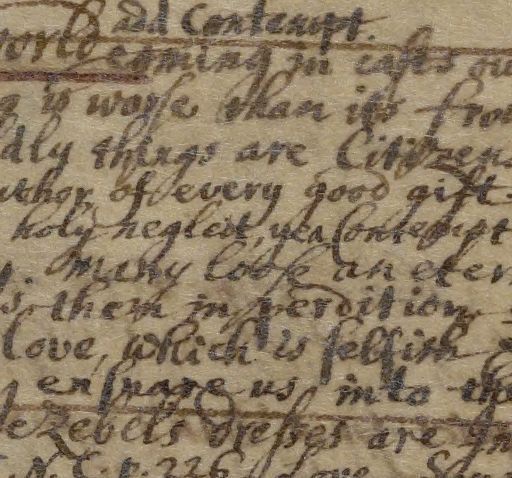 dd Contempt.
World coming in casts ou
g is worse than its fro
ldly things are Citizens
uthor of every good gift.
holy neglect, yea Contempt
y. Many loose an eter
s them in perdition
love, which is selfish
ensnare us into the
Jezebels dresses are
N. C. p. 226. Love